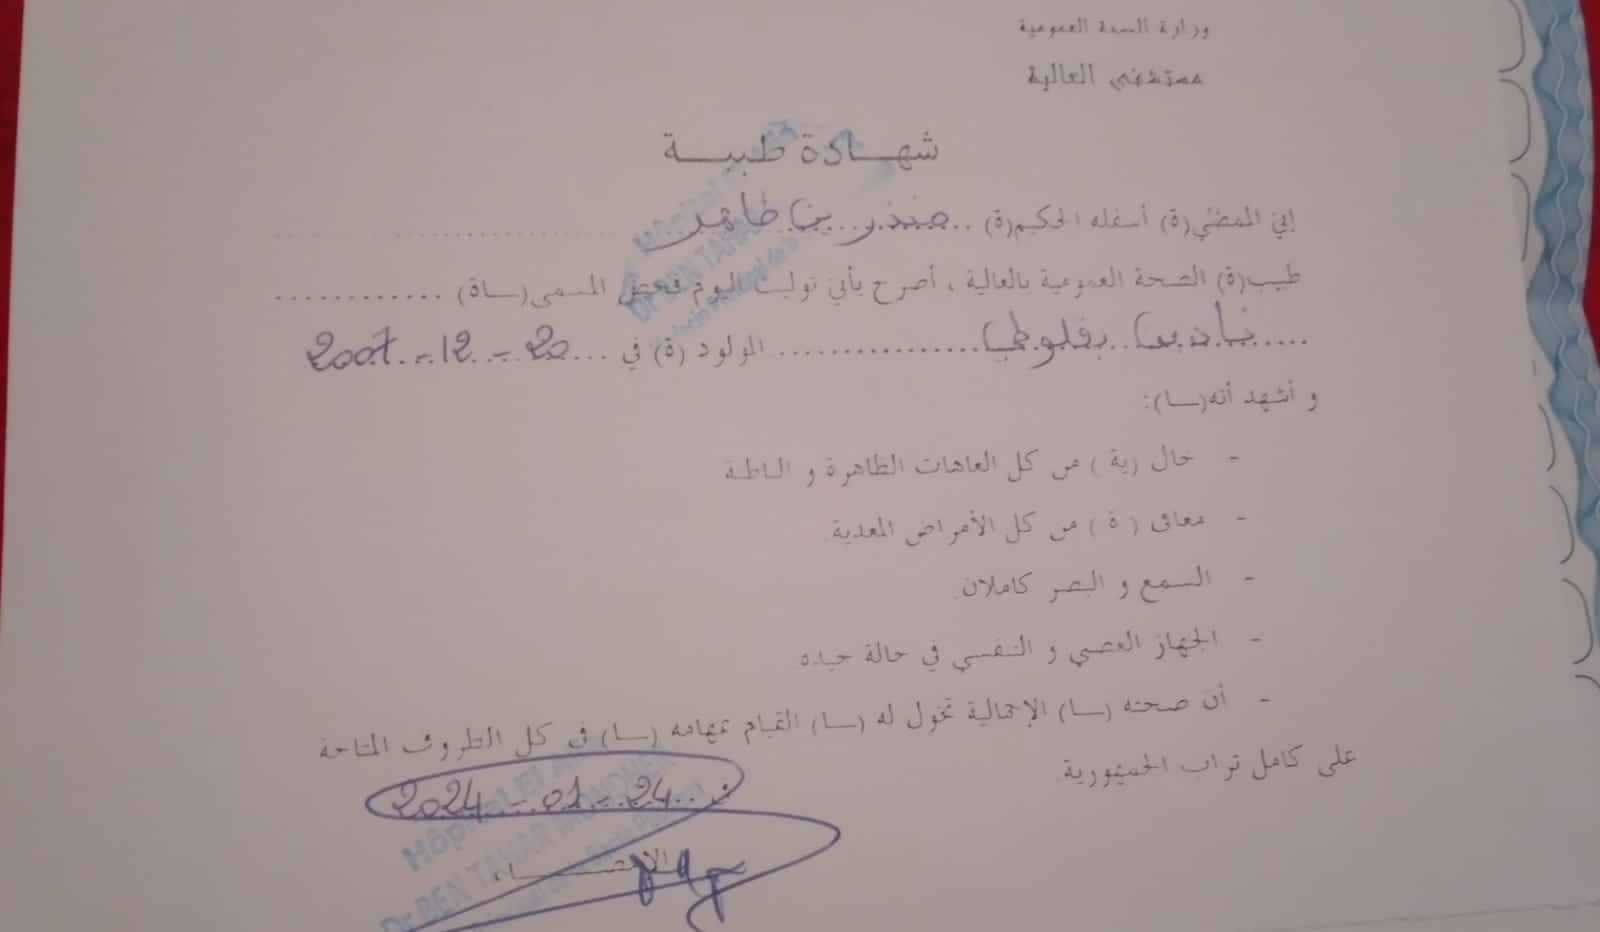 وزارة الصحة العمومية
مستشفى العالية
شهادة طبية
إني الممضي(ة) أسفله الحكيم(ة) منذر بن طاهر
طبيب(ة) الصحة العمومية بالعالية ، أصرح بأني توليت اليوم فحص المسمى(ــاة) ............
المولود (ة) في 20-12-2007
و أشهد أنه(ــا):
- خال (ية ) من كل العاهات الظاهرة و الباطنة
- معافى ( ة ) من كل الأمراض المعدية
- السمع و البصر كاملان
- الجهاز العصبي و النفسي في حالة جيدة
- أن صحته (ــا) الإجمالية تخول له (ــا) القيام بمهامه (ــا) في كل الظروف المتاحة
على كامل تراب الجمهورية
في 24-01-2024
Hôpital El
Dr BEN TAHAR MONDHER
الإمضــــاء